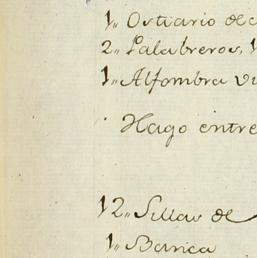 1,, Ostiario de c
2,, Palabreros, 1
1,, Alfombra vi
Hago entre
12,, Sillas de
1,, Banica